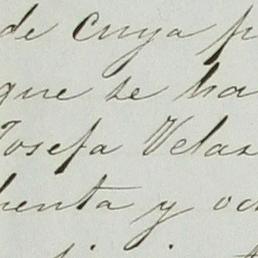 de cuya p
que se ha
Josefa Velas
henta y oc